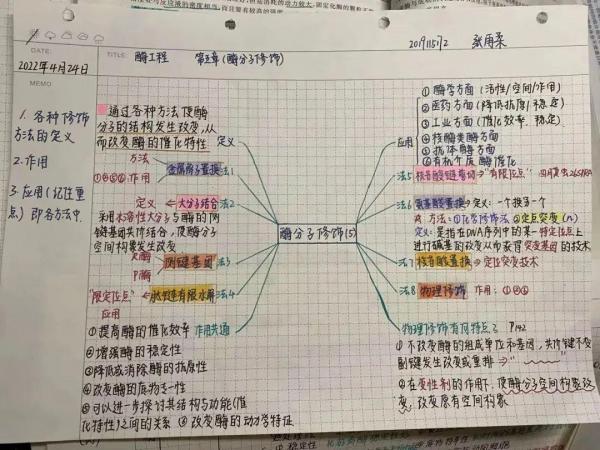 DATE:
2022年4月24日
TITLE: 酶工程 第五章(酶分子修饰)
MEMO
1. 各种修饰
方法的定义
2.作用
3.应用(记性重
点)即各方法中.
通过各种方法使酶
分子的结构发生改变,从
而改变酶的催化特性 定义
方法
作用 金属离子置换 法1
定义 大分子结合 法2
采用水溶性大分子与酶的侧
链基团共价结合,使酶分子
空间构象发生改变
R酶
P酶
侧链基团 法3
"限定位点" 肽链有限水解 法4
应用
①提高酶的催化效率 作用共通
②增强酶的稳定性
③降低或消除酶的抗原性
④改变酶的底物专一性
⑤可以进一步探讨其结构与功能(催
化特性)之间的关系 ⑥改变酶的动力学特征
酶分子修饰(5)
应用
①酶学方面(活性/空间/作用)
②医药方面(降低抗原/稳定)
③工业方面(催化效率、稳定)
④核酸类酶方面
⑤抗体酶方面
⑥有机介质酶催化
法5 核苷酸链剪切 "有限位点"
法6 氨基酸置换 定义:一个换了一个
方法:①化学修饰法 ②定点突变
定义:是指在DNA序列中的某一特定位点上
进行碱基的改变从而获得突变基因的技术
法7 核苷酸置换 定位突变技术
法8 物理修饰 作用:
物理修饰有何特点? P142
①不改变酶的组成单位和基团,共价键不变
副键发生改变或重排
②在变性剂的作用下,使酶分子空间构象改
变,改变原有空间构象